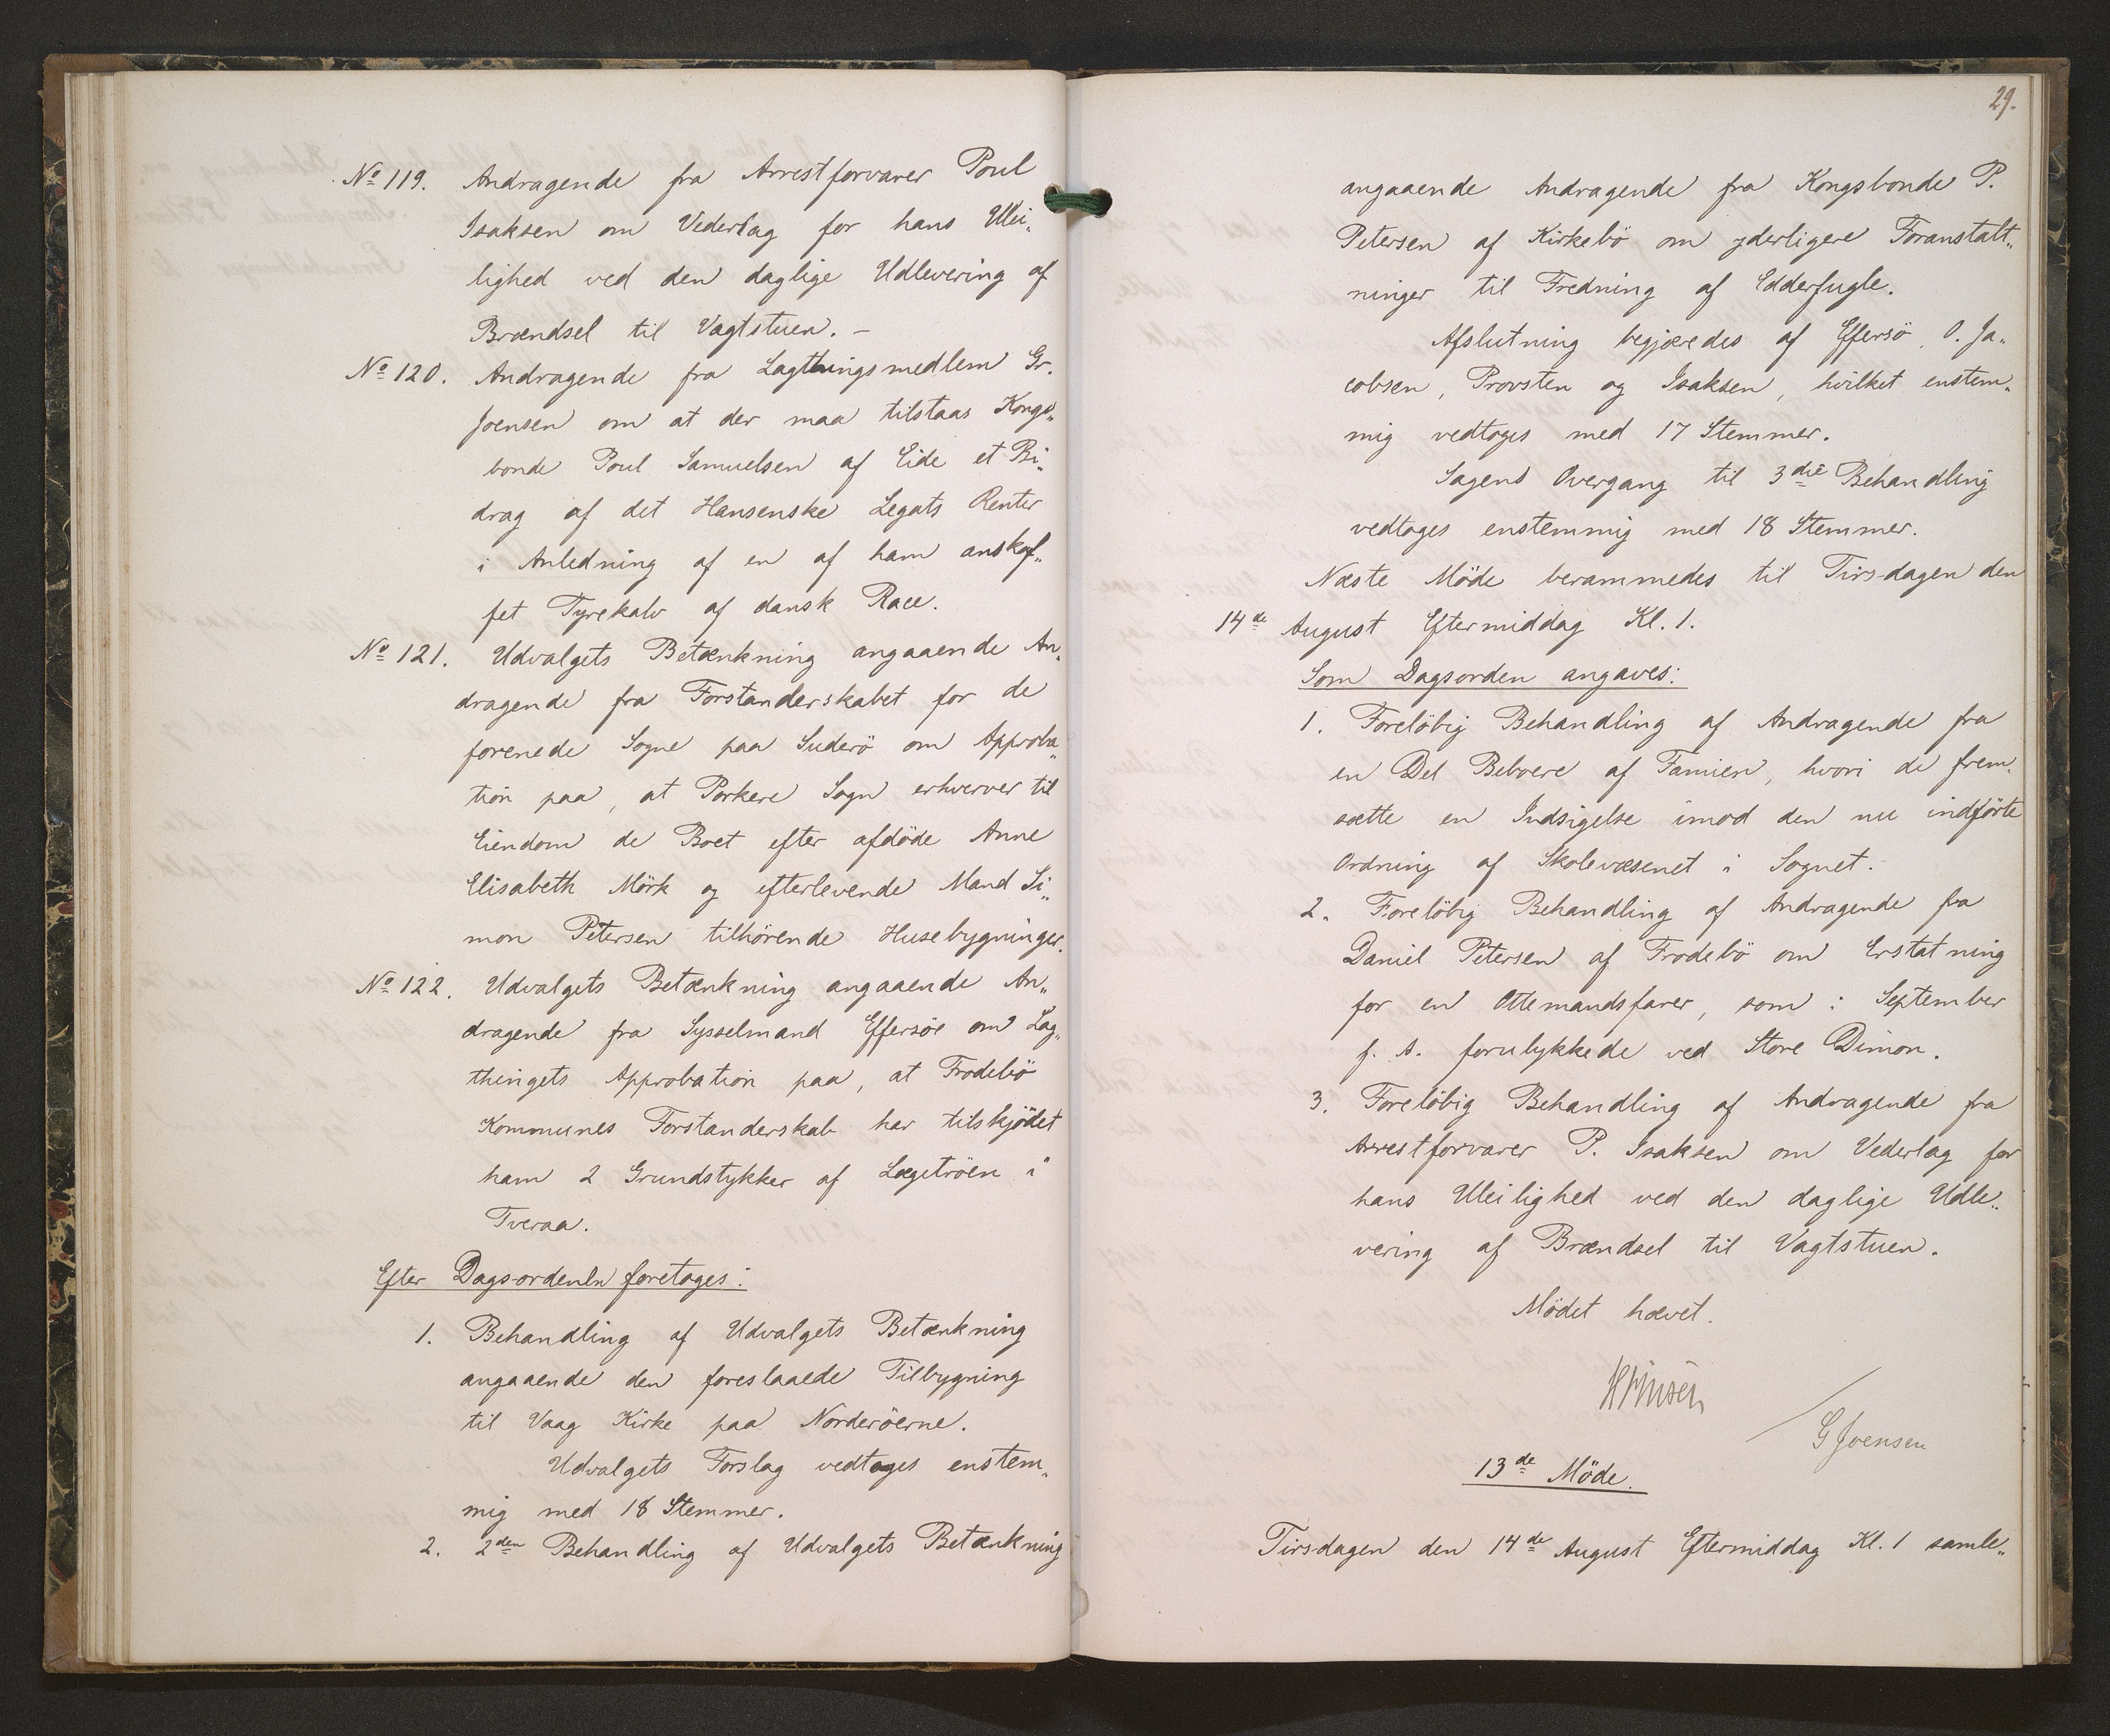 No 119. Andragende fra Arrestforvarer Poul
Isaksen om Vederlag for hans Ulei„
lighed ved den daglige Udlevering af
Brændsel til Vagtstuen. –
No 120. Andragende fra Lagthingsmedlem Gr.
Joensen om at der maa tilstaas Kongs„
bonde Poul Samuelsen af Eide et Bi„
drag af det Hansenske Legats Renter
i Anledning af en af ham anskaf„
fet Tyrekalv af dansk Race.
No 121. Udvalgets Betænkning angaaende An„
dragende fra Forstanderskabet for de
forenede Sogne paa Suderö om Approba„
tion paa, at Porkere Sogn erhverver til
Eiendom de Boet efter afdöde Anne
Elisabeth Mörk og efterlevende Mand Si„
mon Petersen tilhörende Husebygninger.
No 122. Udvalgets Betænkning angaaende An„
dragende fra Sysselmand Effersöe om Lag„
thingets Approbation paa, at Frodebö
Kommunes Forstanderskab har tilskjödet
ham 2 Grundstykker af Lægitröen i
Tveraa.
Efter Dagsordenen foretoges:
1. Behandling af Udvalgets Betænkning
angaaende den foreslaaede Tilbygning
til Vaag Kirke paa Norderöerne.
Udvalgets Forslag vedtoges enstem„
mig med 18 Stemmer.
2. 2den Behandling af Udvalgets Betænkning
29.
angaaende Andragende fra Kongsbonde P.
Petersen af Kirkebö om yderligere Foranstalt„
ninger til Fredning af Edderfugle.
Afslutning begjæredes af Effersö, O. Ja„
cobsen, Provsten og Isaksen, hvilket enstem„
mig vedtoges med 17 Stemmer.
Sagens Overgang til 3die Behandling
vedtoges enstemmig med 18 Stemmer.
Næste Möde berammedes til Tirsdagen den
14de August Eftermiddag Kl. 1.
Som Dagsorden angaves:
1. Forelöbig Behandling af Andragende fra
en Del Beboere af Famien, hvori de frem„
sætte en Indsigelse imod den nu indförte
Ordning af Skolevæsenet i Sognet.
2. Forelöbig Behandling af Andragende fra
Daniel Petersen af Frodebö om Erstatning
for en Ottemandsfarer, som i September
f. A. forulykkede ved Store Dimon.
3. Forelöbig Behandling af Andragende fra
Arrestforvarer P. Isaksen om Vederlag for
hans Uleilighed ved den daglige Udle„
vering af Brændsel til Vagtstuen.
Mödet hævet.
G Joensen
13de Möde.
Tirsdagen den 14de August Eftermiddag Kl. 1 samle„